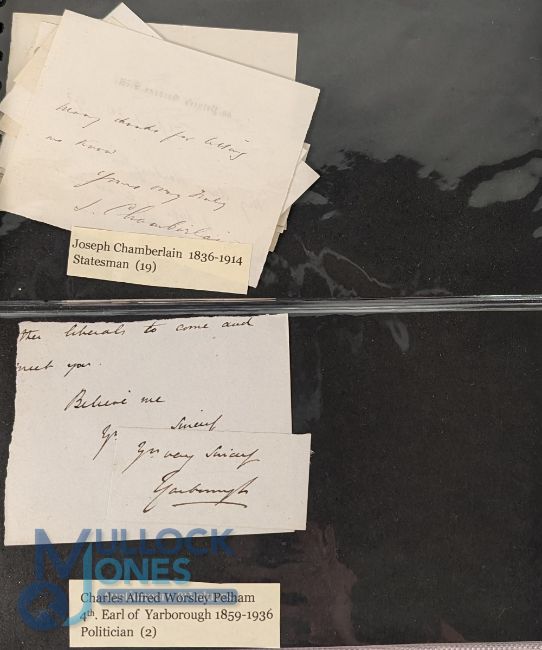 Many thanks for letting
me know
Yours very truly
J. Chamberlain
Joseph Chamberlain 1836-1914
Statesman (19)
ther liberals to come and
meet you.
Believe me
Yrs
Yrs very
Yarborough
MULLOCK
JONES
Charles Alfred Worsley Pelham
4th. Earl of Yarborough 1859-1936
Politician (2)